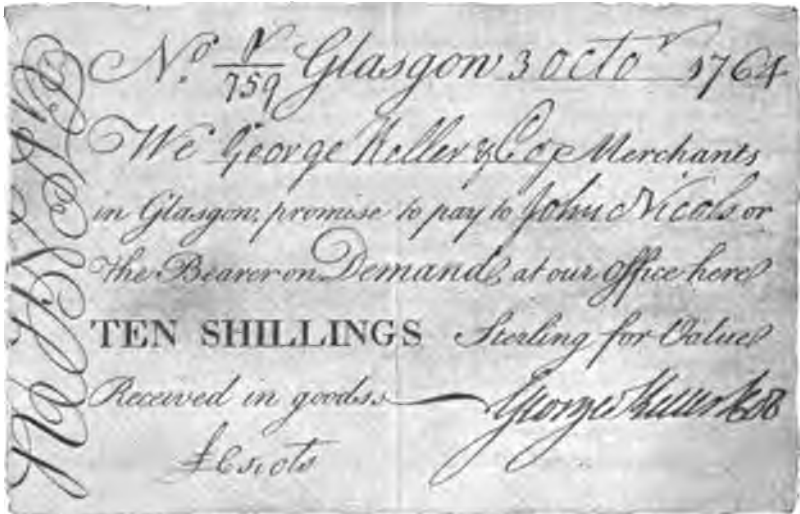 No. 1/759 Glasgow 3 Octor 1764
We George Keller & Co. Merchants
in Glasgow, promise to pay to John Nicols or
the Bearer on Demand, at our Office here
TEN SHILLINGS Sterling for Value
Received in goods
George Keller & Co